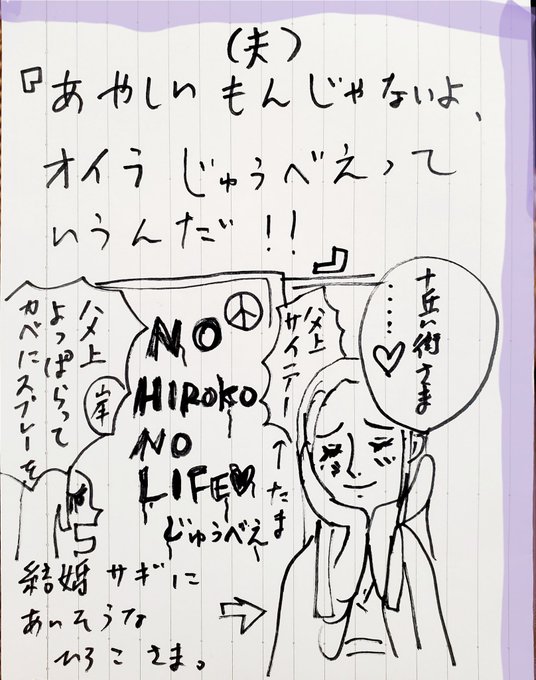 (夫)
『あやしいもんじゃないよ、
オイラ じゅうべえって
いうんだ!!』
十兵ヱ衛さま
……♡
父上
サイテー
↑たま
NO
HIROKO
NO
LIFE♥
じゅうべえ
父上
よっぱらって
カベにスプレーを
岸
結婚サギに
あいそうな
ひろこさま。